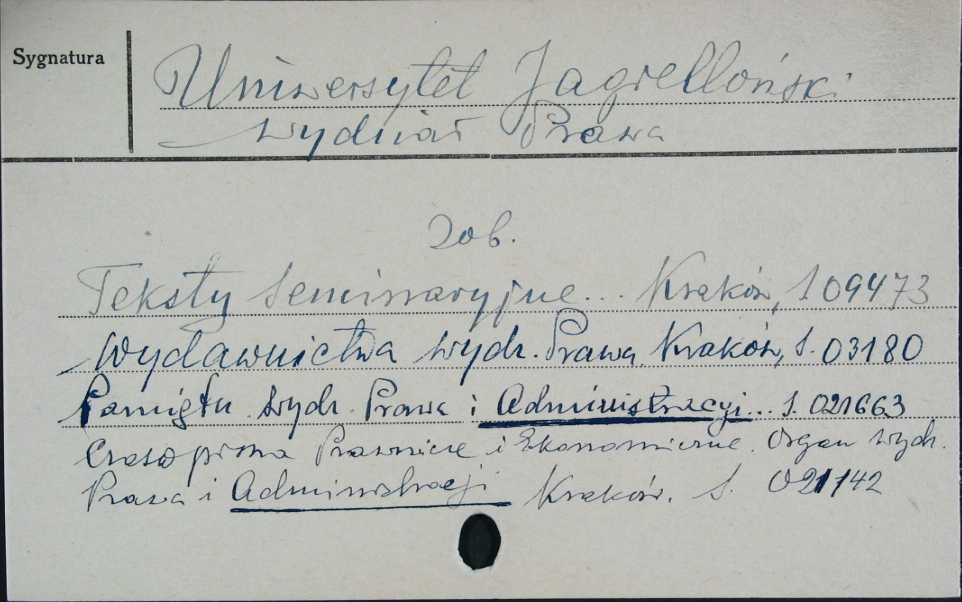 Sygnatura
Uniwersytet Jagielloński
Wydział Prawa
Zob.
Teksty Seminaryjne... Kraków, S 09473
Wydawnictwa Wydz. Prawa, Kraków, S. 03180
Pamiętn. Wydz. Prawa i Administracyi... S. 021663
Czasopisma Prawnicze i Ekonomiczne. Organ Wydz.
Prawa i Administracji Kraków. S. 021142